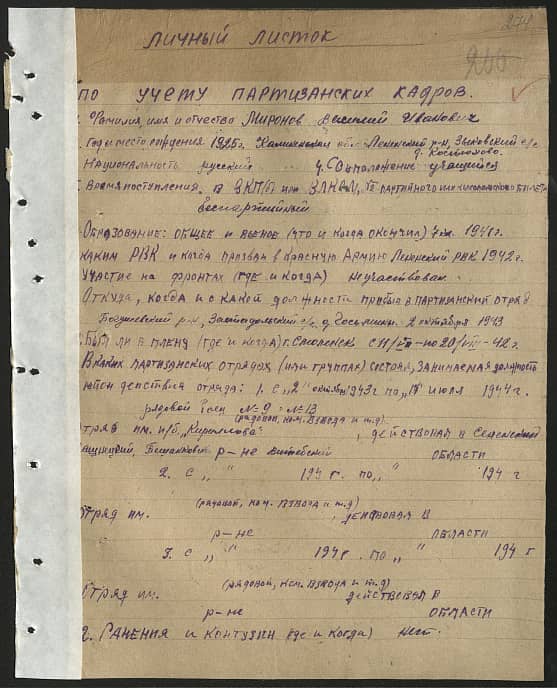 274
200
ЛИЧНЫЙ ЛИСТОК
ПО УЧЕТУ ПАРТИЗАНСКИХ КАДРОВ.
Фамилия, имя и отчество Миронов Василий Иванович
Год и место рождения 1925г. обл. Ленинский р-н, Зыковский с/с
д.
Национальность русский 4. Соц положение учащийся
Время поступления в ВКП/б или ВЛКСМ, № партийного или комсомольского билета
беспартийный
Образование: общее и военое (что и когда окончил) 7 кл. 1941г.
каким РВК и когда призван в Красную Армию Ленинский РВК 1942г.
Участие на фронтах (где и когда) Не участвовал.
Откуда, когда и с какой должности прибыл в партизанский отряд
Богушевский р-н, с/с, д. 2 октября 1943
Был ли в плену (где и когда) г. Смоленск с 11/VII - по 20/VII - 42г.
В каких партизанских отрядах (или группах) состоял, занимаемая должность
действия отряда: 1. с "2" октября 1943г по " июля 1944г.
рядовой №9 №13
(рядовой, ком. взвода и т.д)
отряд им. п/б. "Кириллова", действовал в Сенненском
Бешенкович р-не Витебской ОБЛАСТИ
2. с " " 194 г. по " " 194 г
(рядовой, ком. взвода и т.д)
Отряд им. действовал в
р-не ОБЛАСТИ
3. с " " 194г. по " " 194 г
(рядовой, ком. взвода и т.д)
Отряд им. действовал в
р-не ОБЛАСТИ
2. Ранения и контузии (где и когда) Нет.